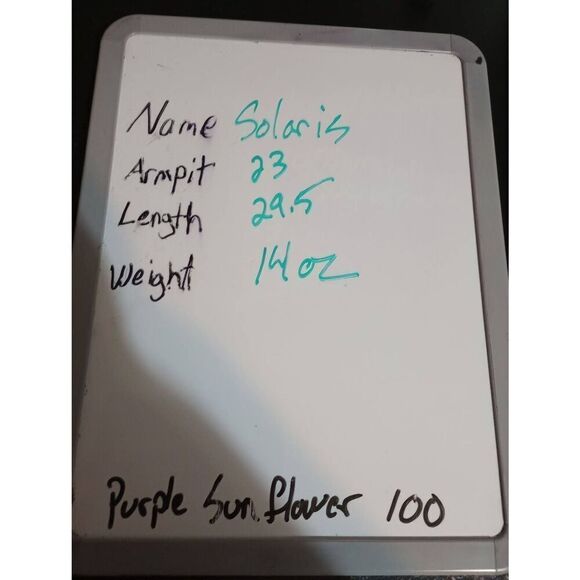 Name Solaris
Armpit 23
Length 29.5
Weight 14 oz
Purple Sunflower 100